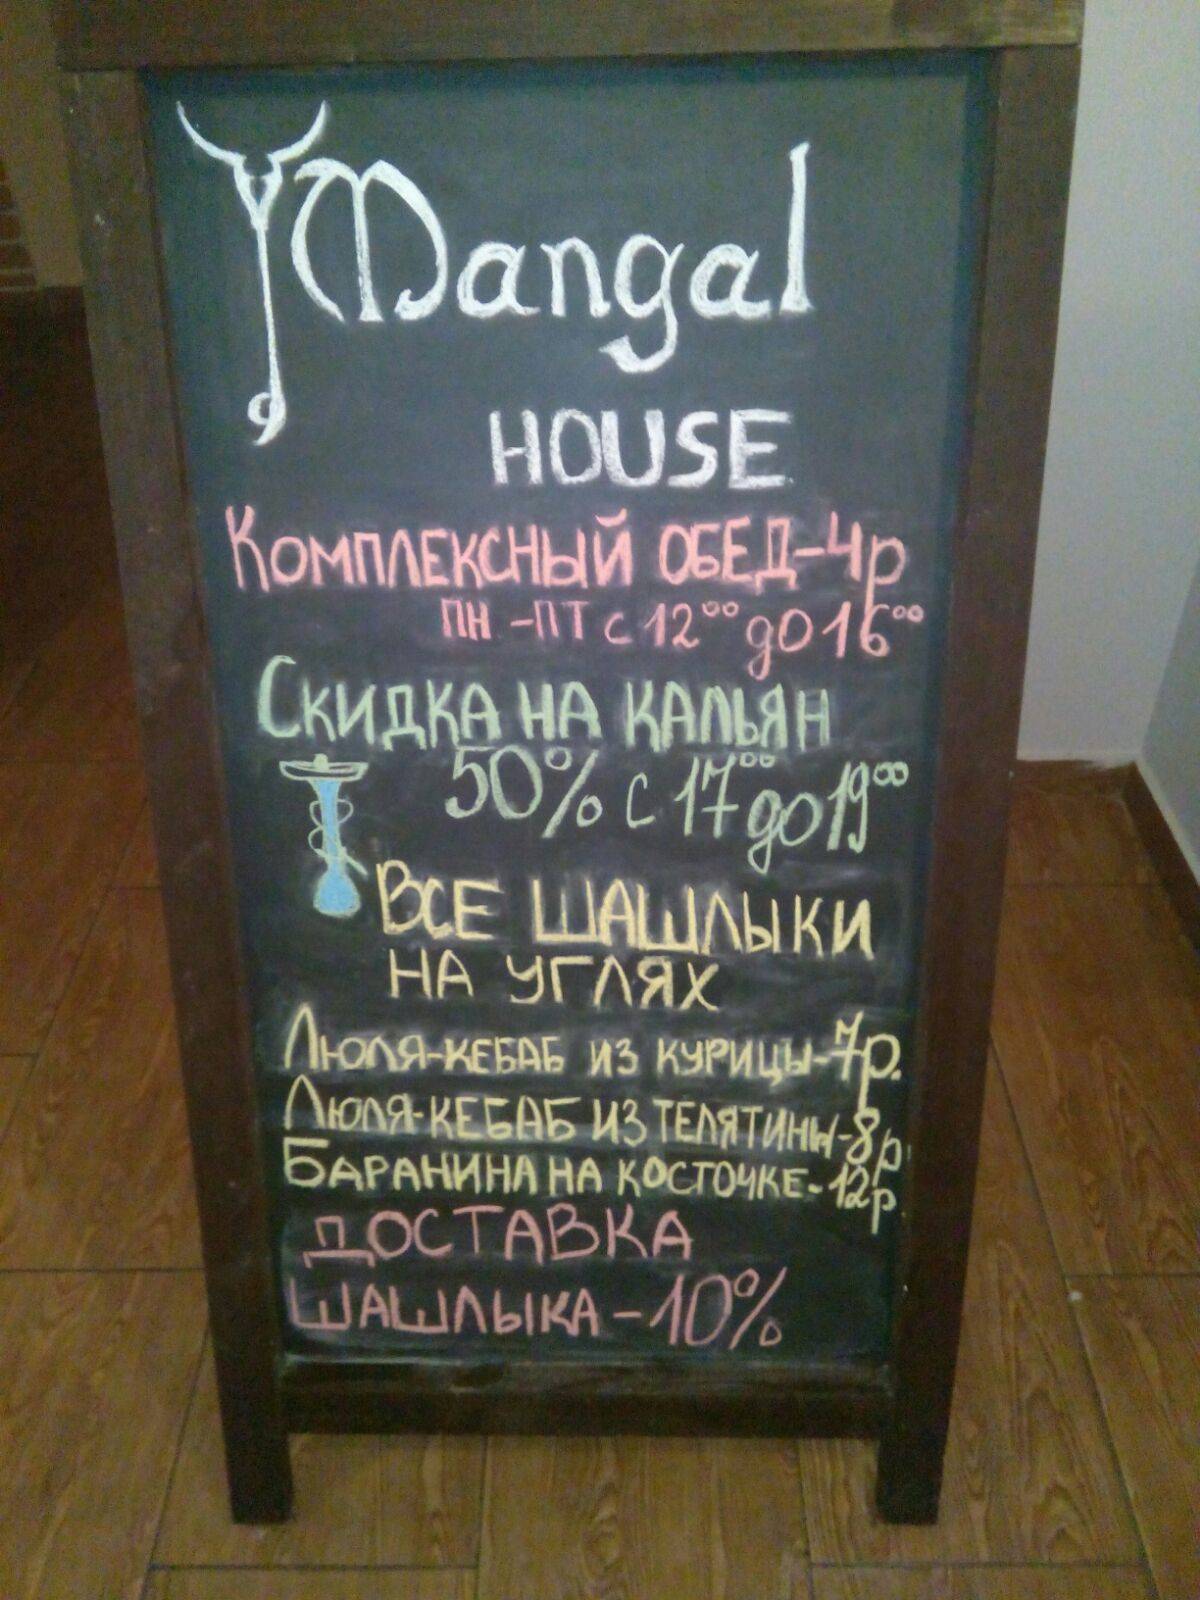 Mangal
HOUSE
Комплексный обед-4р
пн-пт с 12⁰⁰ до 16⁰⁰
Скидка на кальян
50% с 17⁰⁰ до 19⁰⁰
Все шашлыки
на углях
Люля-кебаб из курицы-7р.
Люля-кебаб из телятины-8р.
Баранина на косточке-12р
Доставка
шашлыка-10%